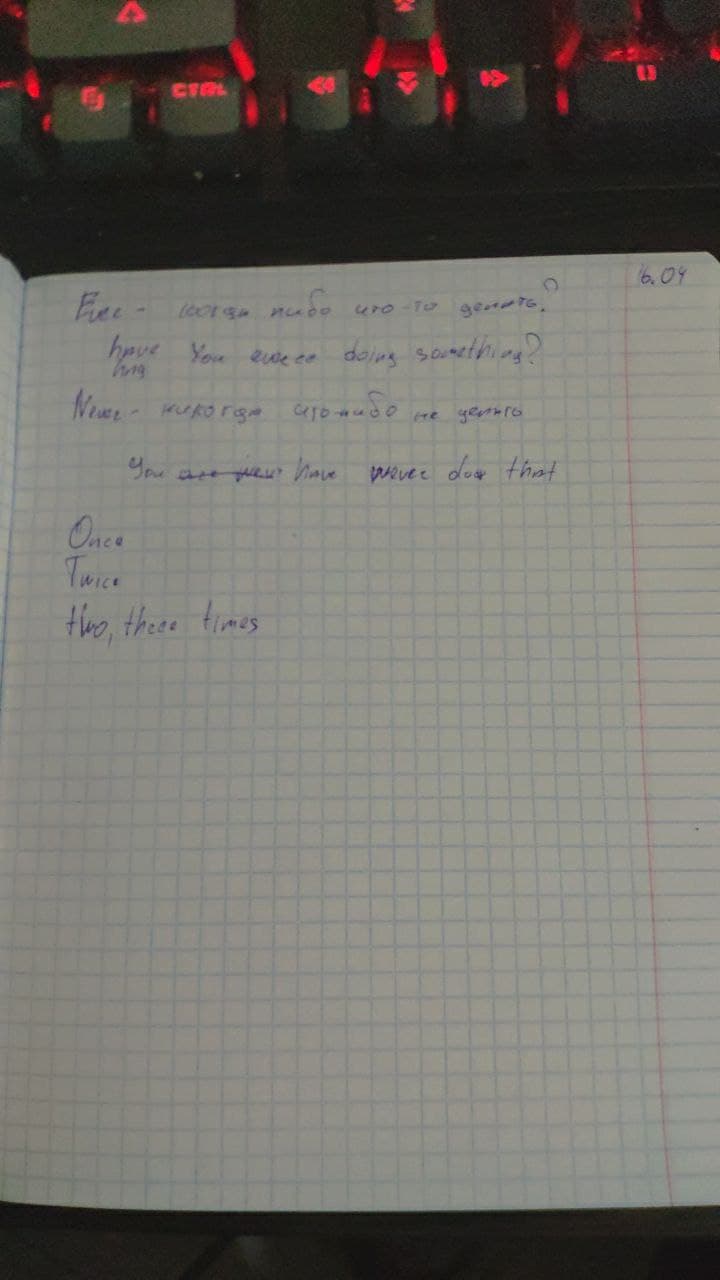 CTRL
16.04
Ever - когда либо что-то делать?
have You ever doing something?
has
Never - никогда что-либо не делать
You have never that
Once
Twice
two, three times